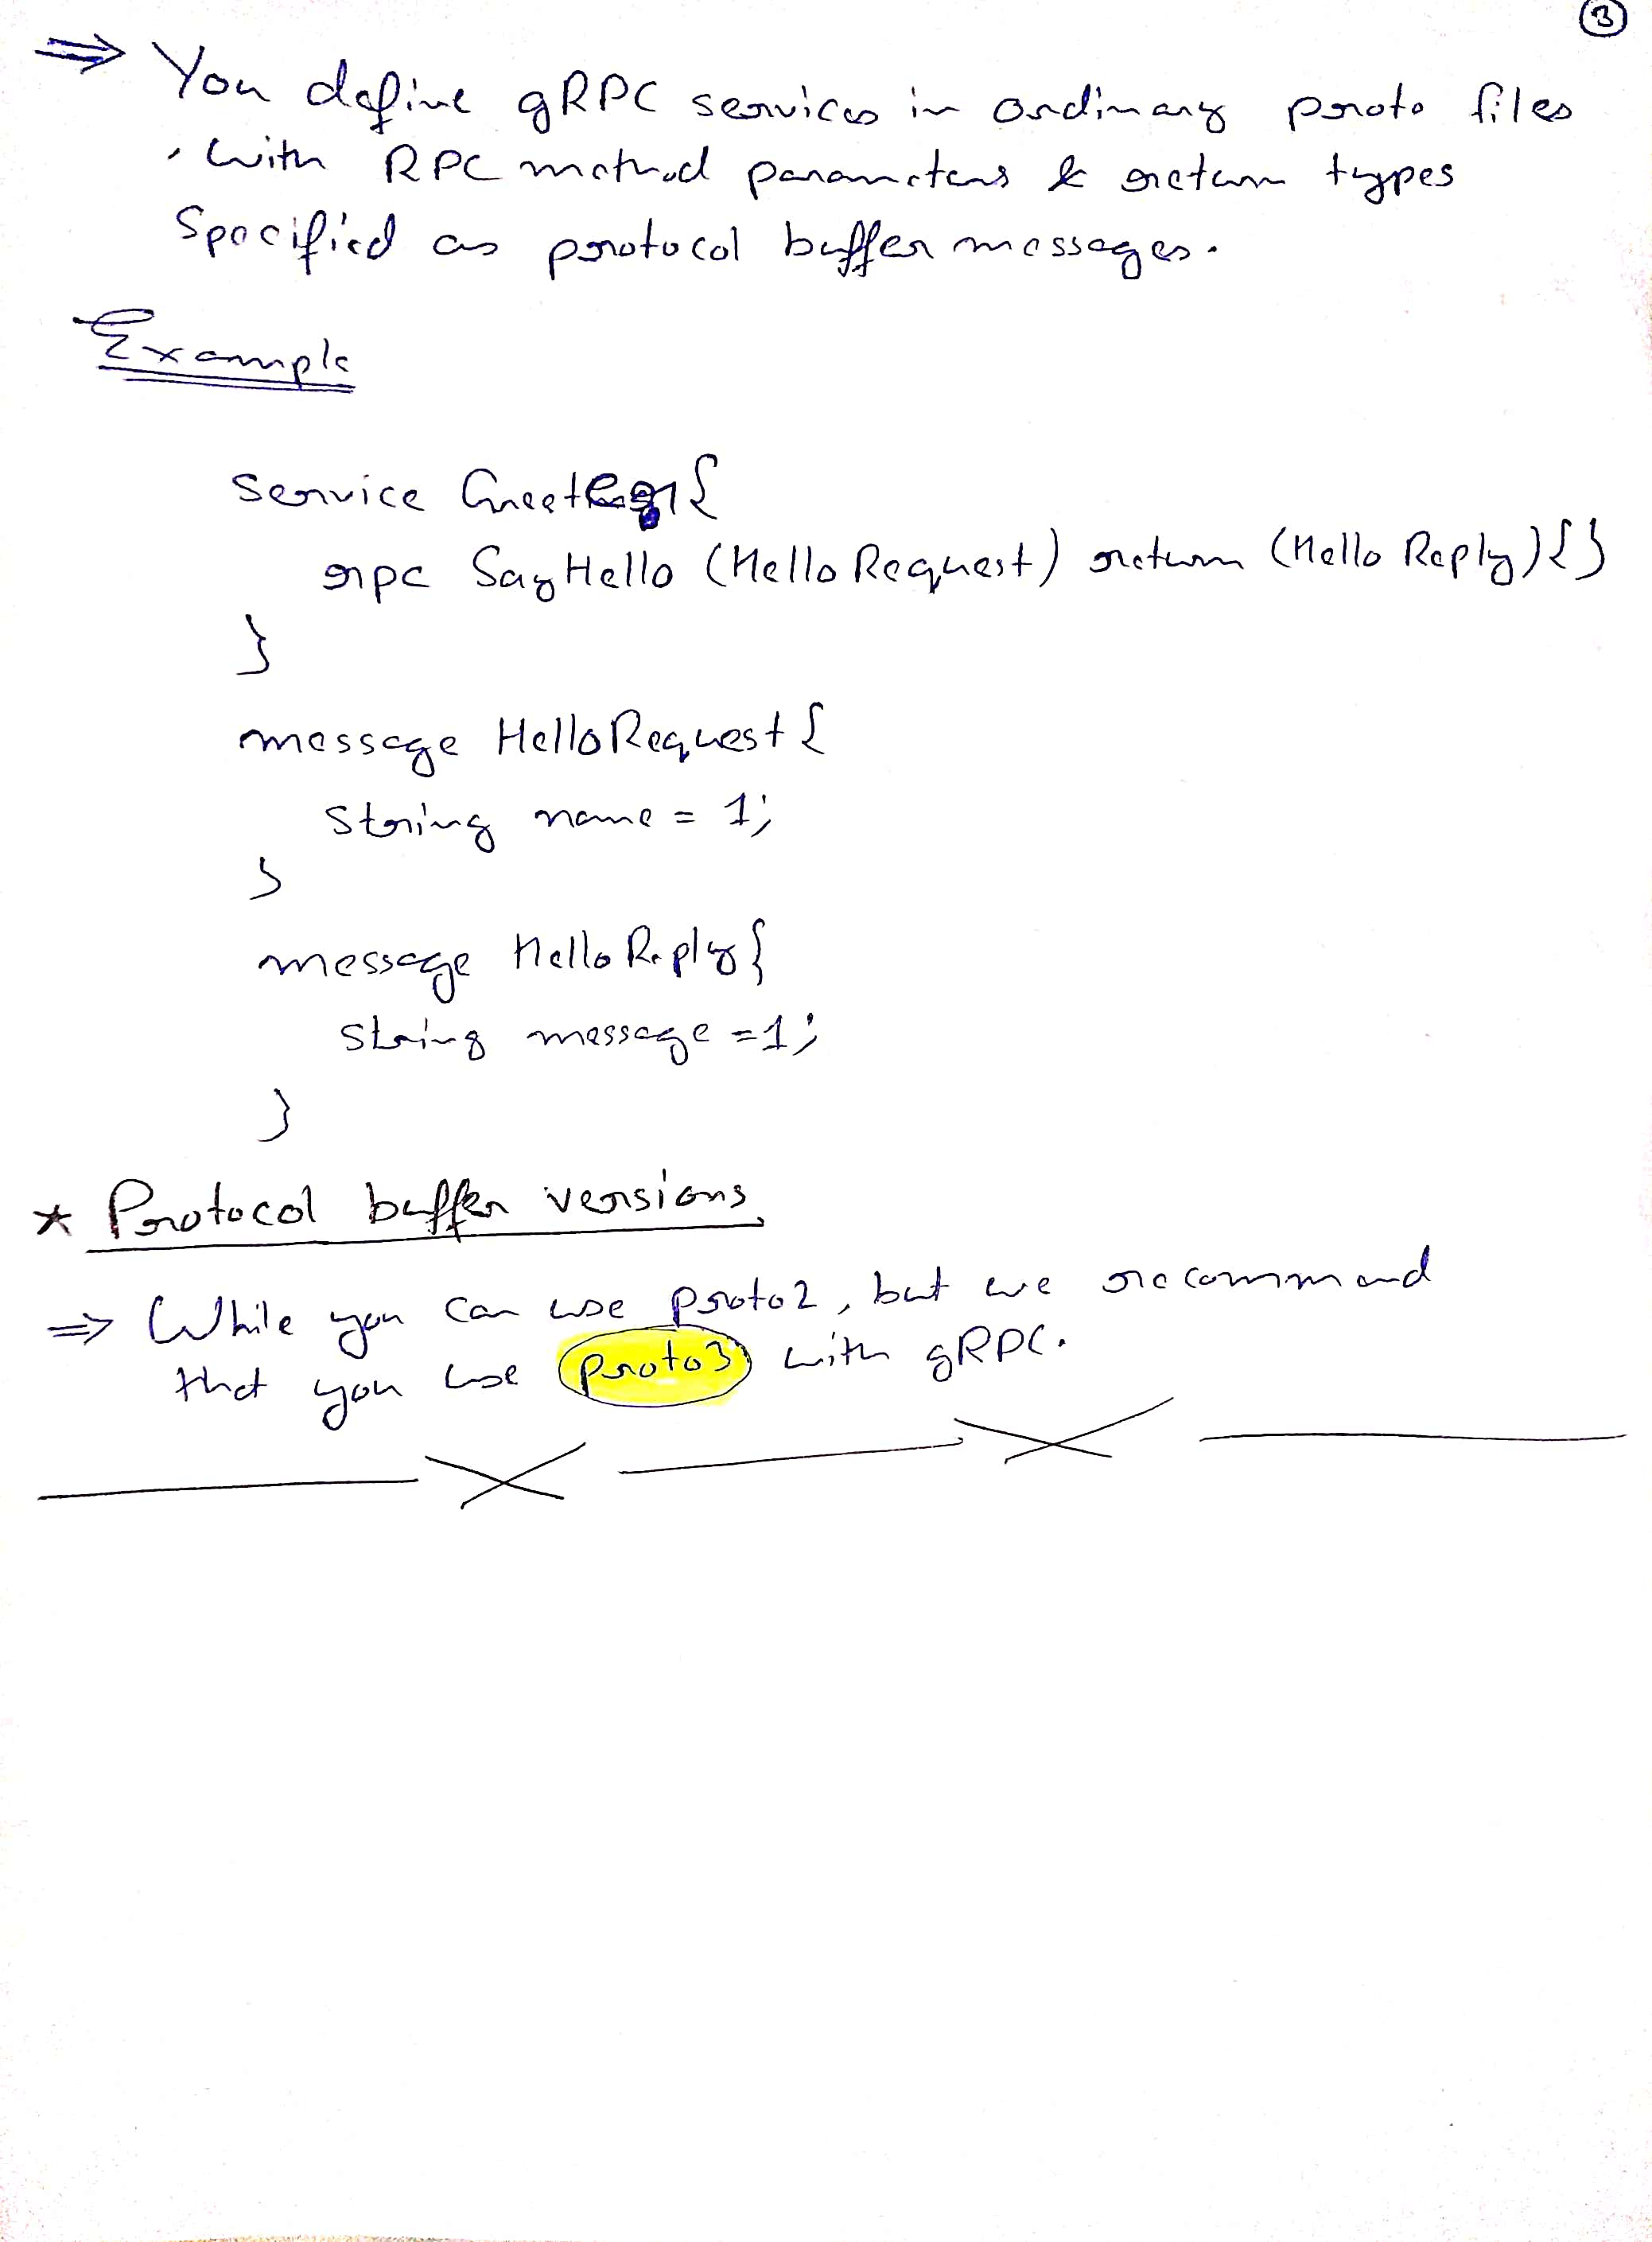 3
⇒ You define gRPC services in ordinary proto files
, with RPC method parameters & return types
Specified as protocol buffer messages.
Example
service Greeter{
rpc SayHello (HelloRequest) return (HelloReply){}
}
message HelloRequest{
string name = 1;
}
message HelloReply{
string message = 1;
}
* Protocol buffer versions
⇒ While you can use proto2, but we recommend
that you use proto3 with gRPC.